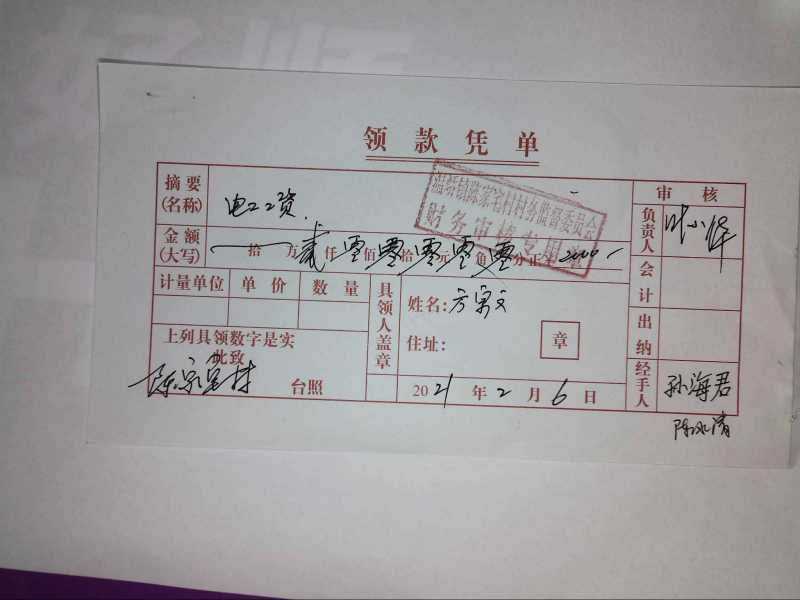 领款凭单
摘要(名称) 电工工资
温峤镇陈家宅村村务监督委员会
财务审核专用章
审核
金额(大写) 拾万贰仟零佰零拾零元零角零分正 2000-
负责人 叶小
计量单位 单价 数量
具领人盖章
姓名: 方
会计
上列具领数字是实
此致
住址: 章
出纳
陈家宅村 台照
2021年2月6日
经手人 孙海君
陈冰清